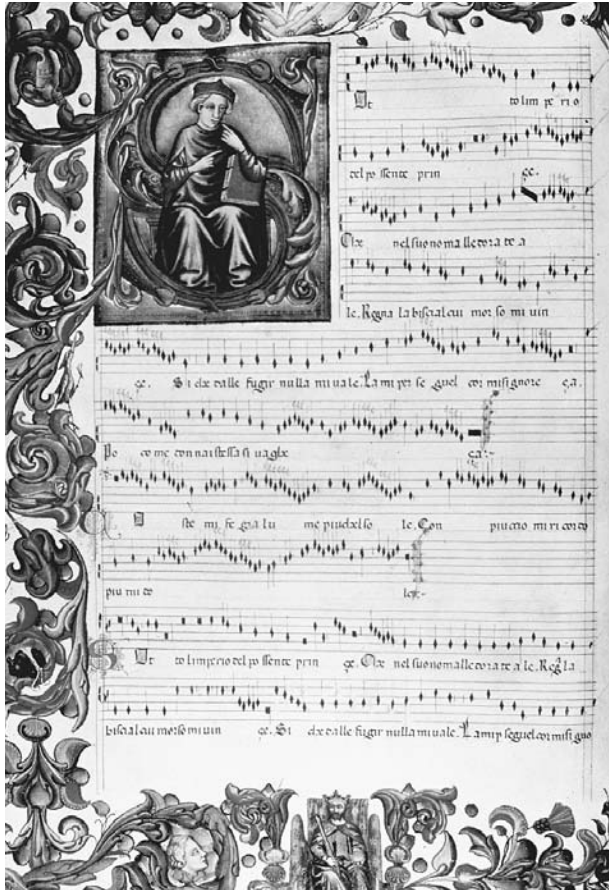 Ot to lim pe ri o
del po ssente prin çe.
Che nel suo no ma lle dora te a
le. Regna la biscial cui mor so mi vin
çe. Si che dalle fugir nulla mi vale. La mi per se guel cor mi signore ça.
Po co me con na i stessa si vaghe ça:-
ste mi fe gia lu me piu chel so le. Con piu mi ricordo
piu mi do le:-
S Ot to limperio del po ssente prin çe. Che nel suo nomalle dora te a le. Reg̃ la
biscial cui morso mi vin çe. Si che dalle fugir nulla mi vale. La mi p seguel cor mi signo